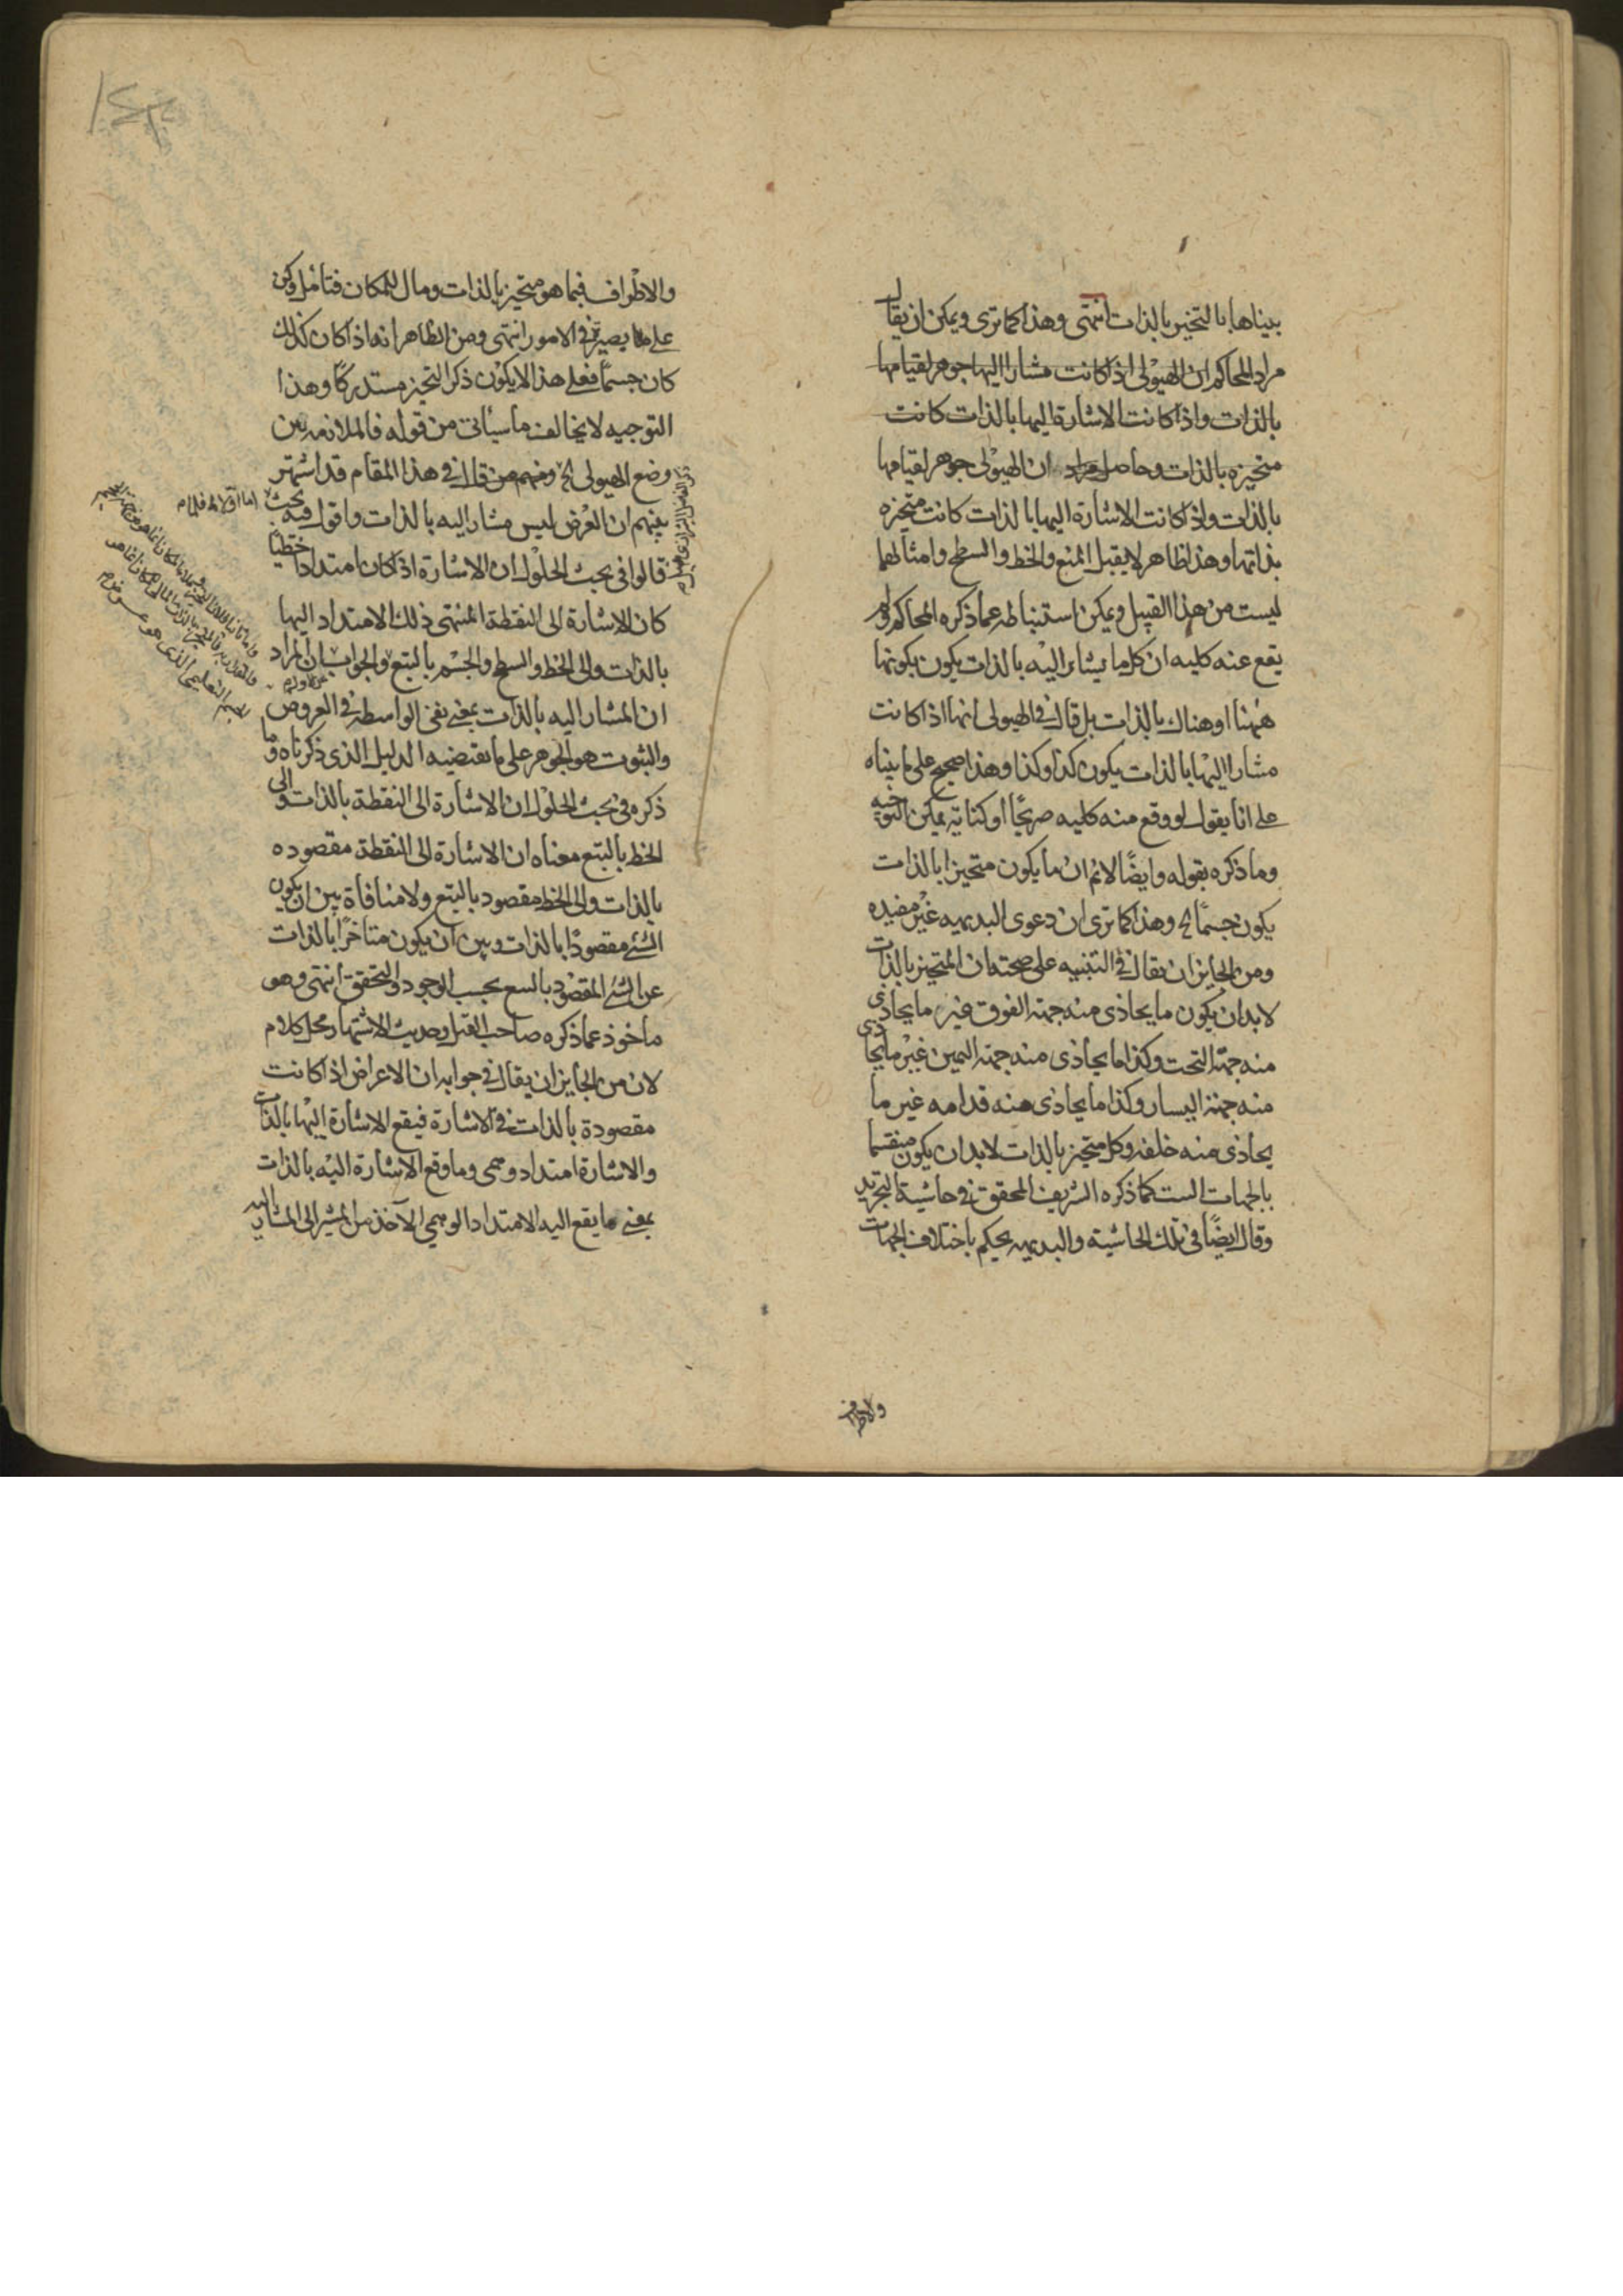 بيناها بالتحيز بالذات انتهى وهذا كما ترى ويمكن ان يقال
مراد المحاكم ان الهيولى اذا كانت مشارا اليها جوهر لقيامها
بالذات واذا كانت الاشارة اليها بالذات كانت
متحيزه بالذات وحاصل مراده ان الهيولى جوهر لقيامها
بالذات واذا كانت الاشارة اليها بالذات كانت متحيزه
بذاتها وهذا ظاهر لا يقبل المنع والخط والسطح وامثالهما
ليست من هذا القبيل ويمكن استنباطه عما ذكره المحاكم ولم
يقع عنه كليه ان كل ما يشار اليه بالذات يكون بكونها
ههنا او هناك بالذات بل قال في الهيولى انها اذا كانت
مشارا اليها بالذات يكون كذا وكذا وهذا صحيح على ما بيناه
على انا نقول لو وقع منه كليه صريحًا او كناية يمكن التوجيه
وما ذكره بقوله وايضًا لانم ان ما يكون متحيزا بالذات
يكون جسمًا الخ وهذا كما ترى ان دعوى البديهيه غير مفيده
ومن الجايز ان يقال في التنبيه على صحته ان المتحيز بالذات
لابد ان يكون ما يحاذى منه جهة الفوق غير ما يحاذى
منه جهة التحت وكذا ما يحاذى منه جهة اليمين غير ما يحاذى
منه جهة اليسار وكذا ما يحاذى منه قدامه غير ما
يحاذى منه خلفه وكل متحيز بالذات لابد ان يكون منقسما
بالجهات الست كما ذكره الشريف المحقق في حاشية التجريد
وقال ايضًا في تلك الحاشية والبديهيه يحكم باختلاف الجهات
والاطراف
والاطراف فيما هو متحيز بالذات ومال للمكان فتامل وكن
على بصيرة في الامور انتهى ومن الظاهر انه اذا كان كذلك
كان جسمًا فعلى هذا لا يكون ذكر التحيز مستدركًا وهذا
التوجيه لا يخالف ما سيأتى من قوله فالملازمه بين
وضع الهيولى الخ ومنهم من قال في هذا المقام قد اشتهر
بينهم ان العرض ليس مشار اليه بالذات واقول فيه بحث
قالوا في بحث الحلول ان الاشارة اذا كان امتدادا خطيًا
كان الاشارة الى النقطة المنتهى ذلك الامتداد اليها
بالذات والى الخط والسطح والجسم بالتبع والجواب ان المراد
ان المشار اليه بالذات بمعنى نفى الواسطه في العروض
والثبوت هو الجوهر على ما يقتضيه الدليل الذى ذكرناه وما
ذكره في بحث الحلول ان الاشارة الى النقطة بالذات والى
الخط بالتبع معناه ان الاشارة الى النقطة مقصوده
بالذات والى الخط مقصود بالتبع ولا منافاة بين ان يكون
الشئ مقصودًا بالذات وبين ان يكون متأخرًا بالذات
عن الشئ المقصود بالتبع بحسب الوجود والتحقق انتهى وهو
ماخوذ عما ذكره صاحب القيل وحديث الاشتهار محل كلام
لان من الجايز ان يقال في جوابه ان الاعراض اذا كانت
مقصودة بالذات في الاشارة فيقع الاشارة اليها بالذات
والاشارة امتداد وهمى وما وقع الاشارة اليه بالذات
بمعنى ما يقع اليه الامتداد الوهمي الآخذ من المشير الى المشار اليه
اما اولا فلما